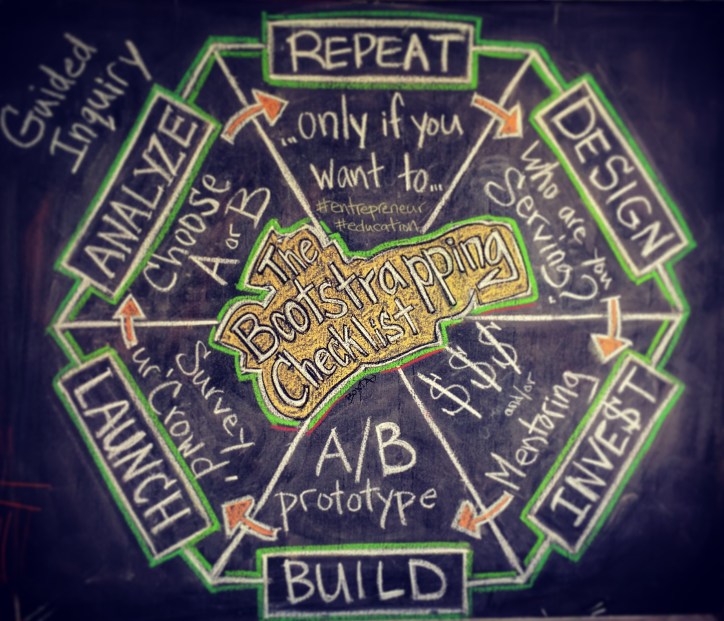 Guided
Inquiry
REPEAT
...only if you
want to...
#entrepreneur
#education
DESIGN
Who are you
Serving?
INVE$T
$$$
and/or
Mentoring
BUILD
A/B
prototype
LAUNCH
Survey
ur 'Crowd'
ANALYZE
Choose
A or B
The
Bootstrapping
Checklist